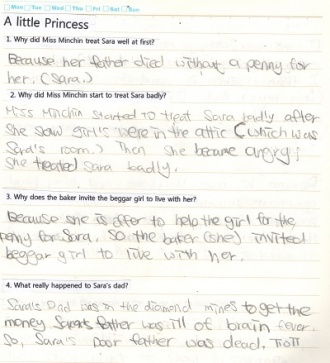 Mon Tue Wed Thu Fri Sat Sun
A little Princess
1. Why did Miss Minchin treat Sara well at first?
Because her father died without a penny for
her. (Sara.)
2. Why did Miss Minchin start to treat Sara badly?
Miss Minchin started to treat Sara badly after
she saw girl's were in the attic (which was
Sara's room.) Then she became angry;
she treated Sara badly.
3. Why does the baker invite the beggar girl to live with her?
Because she is offer to help the girl for the
penny for Sara. So the baker (she) invited
beggar girl to live with her.
4. What really happened to Sara's dad?
Sara's Dad was in the diamond mines to get the
money Sara's father was ill of brain fever.
So, Sara's poor father was dead.